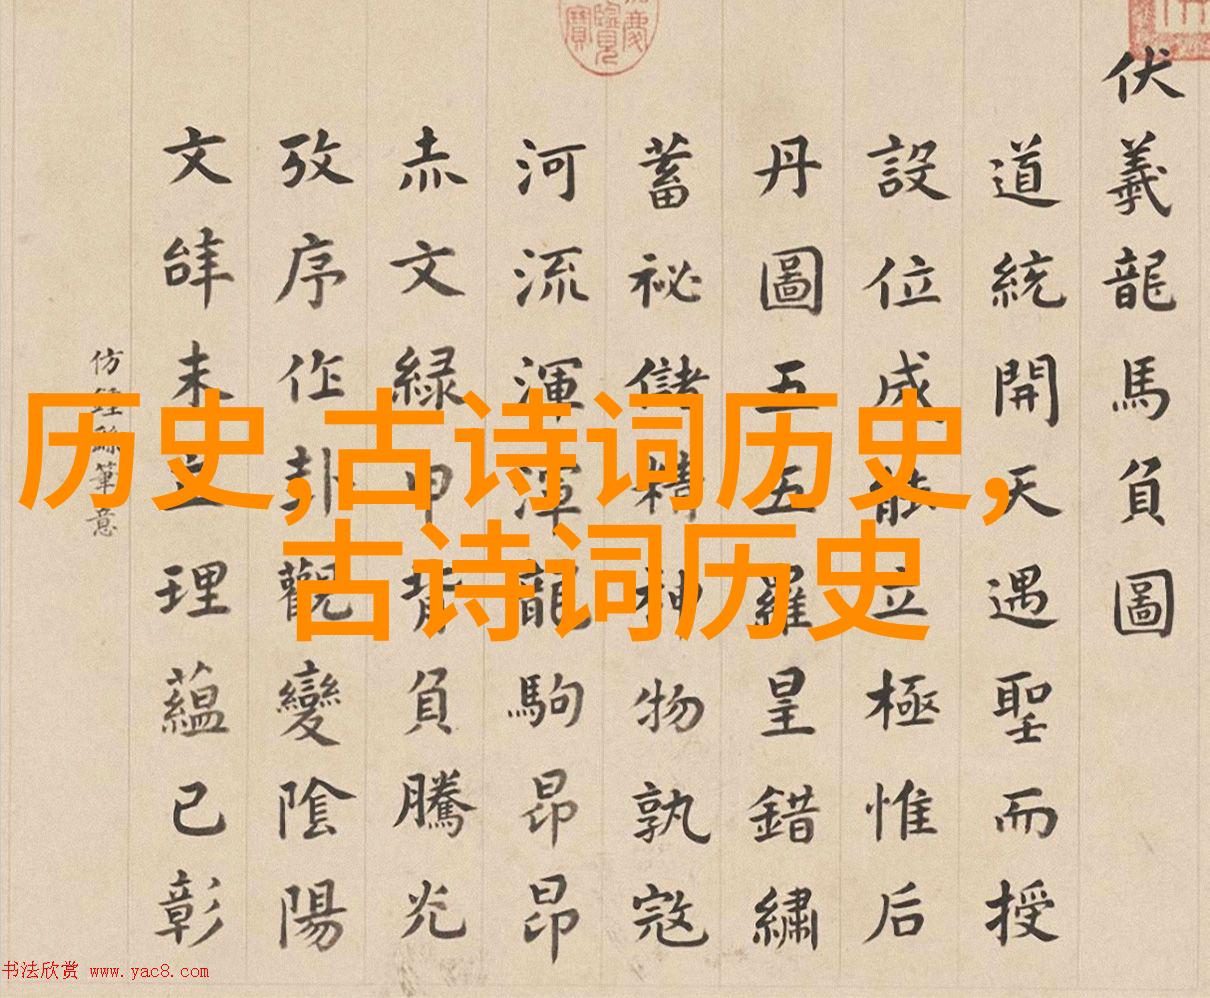 伏羲龍馬負圖
道統開天遇聖而授
設位成能立極惟后
丹圖五五羅皇錯繡
蓄祕儲精神物孰寇
河流渾渾龍駒昂昂
赤文緑甲背負騰光
攷序作卦觀變陰陽
文辝未立理藴已彰
仿經筆意
历史,古诗词历史,
古诗词历史
书法欣赏 www.yac8.com